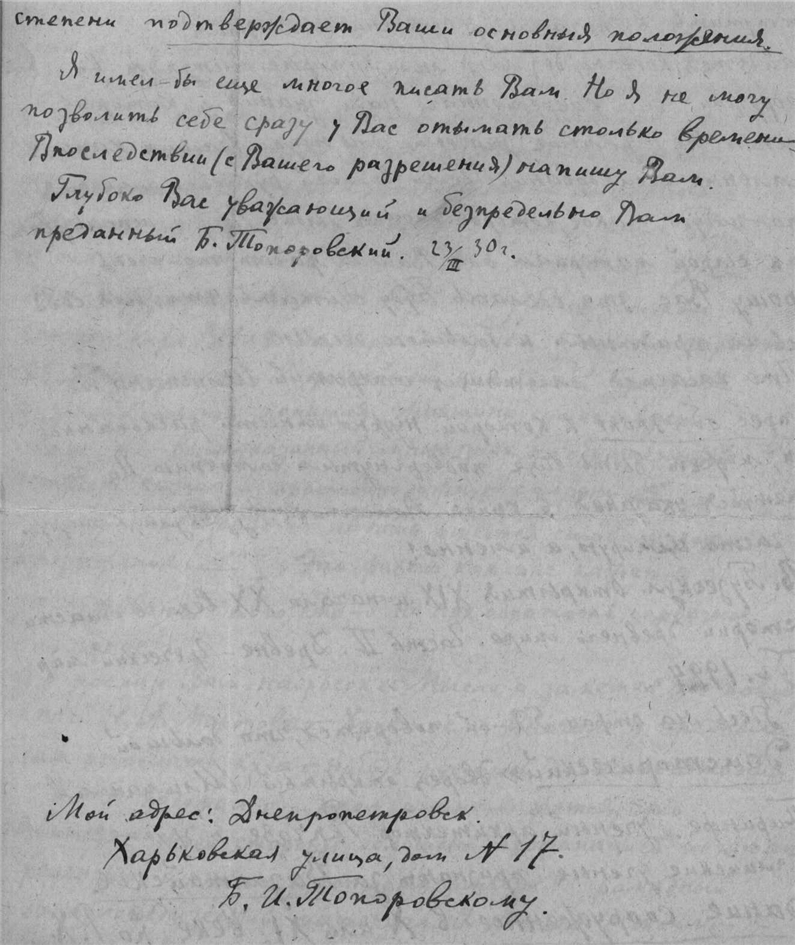 степени подтверждает Ваши основныя положения.
Я имел-бы еще многое писать Вам. Но я не могу
позволить себе сразу у Вас отымать столько времени
Впоследствии (с Вашего разрешения) напишу Вам.
Глубоко Вас уважающий и безпредельно Вам
преданный Б. Топоровский. 23/III 30 г.
Мой адрес: Днепропетровск.
Харьковская улица, дом № 17.
Б. И. Топоровскому.